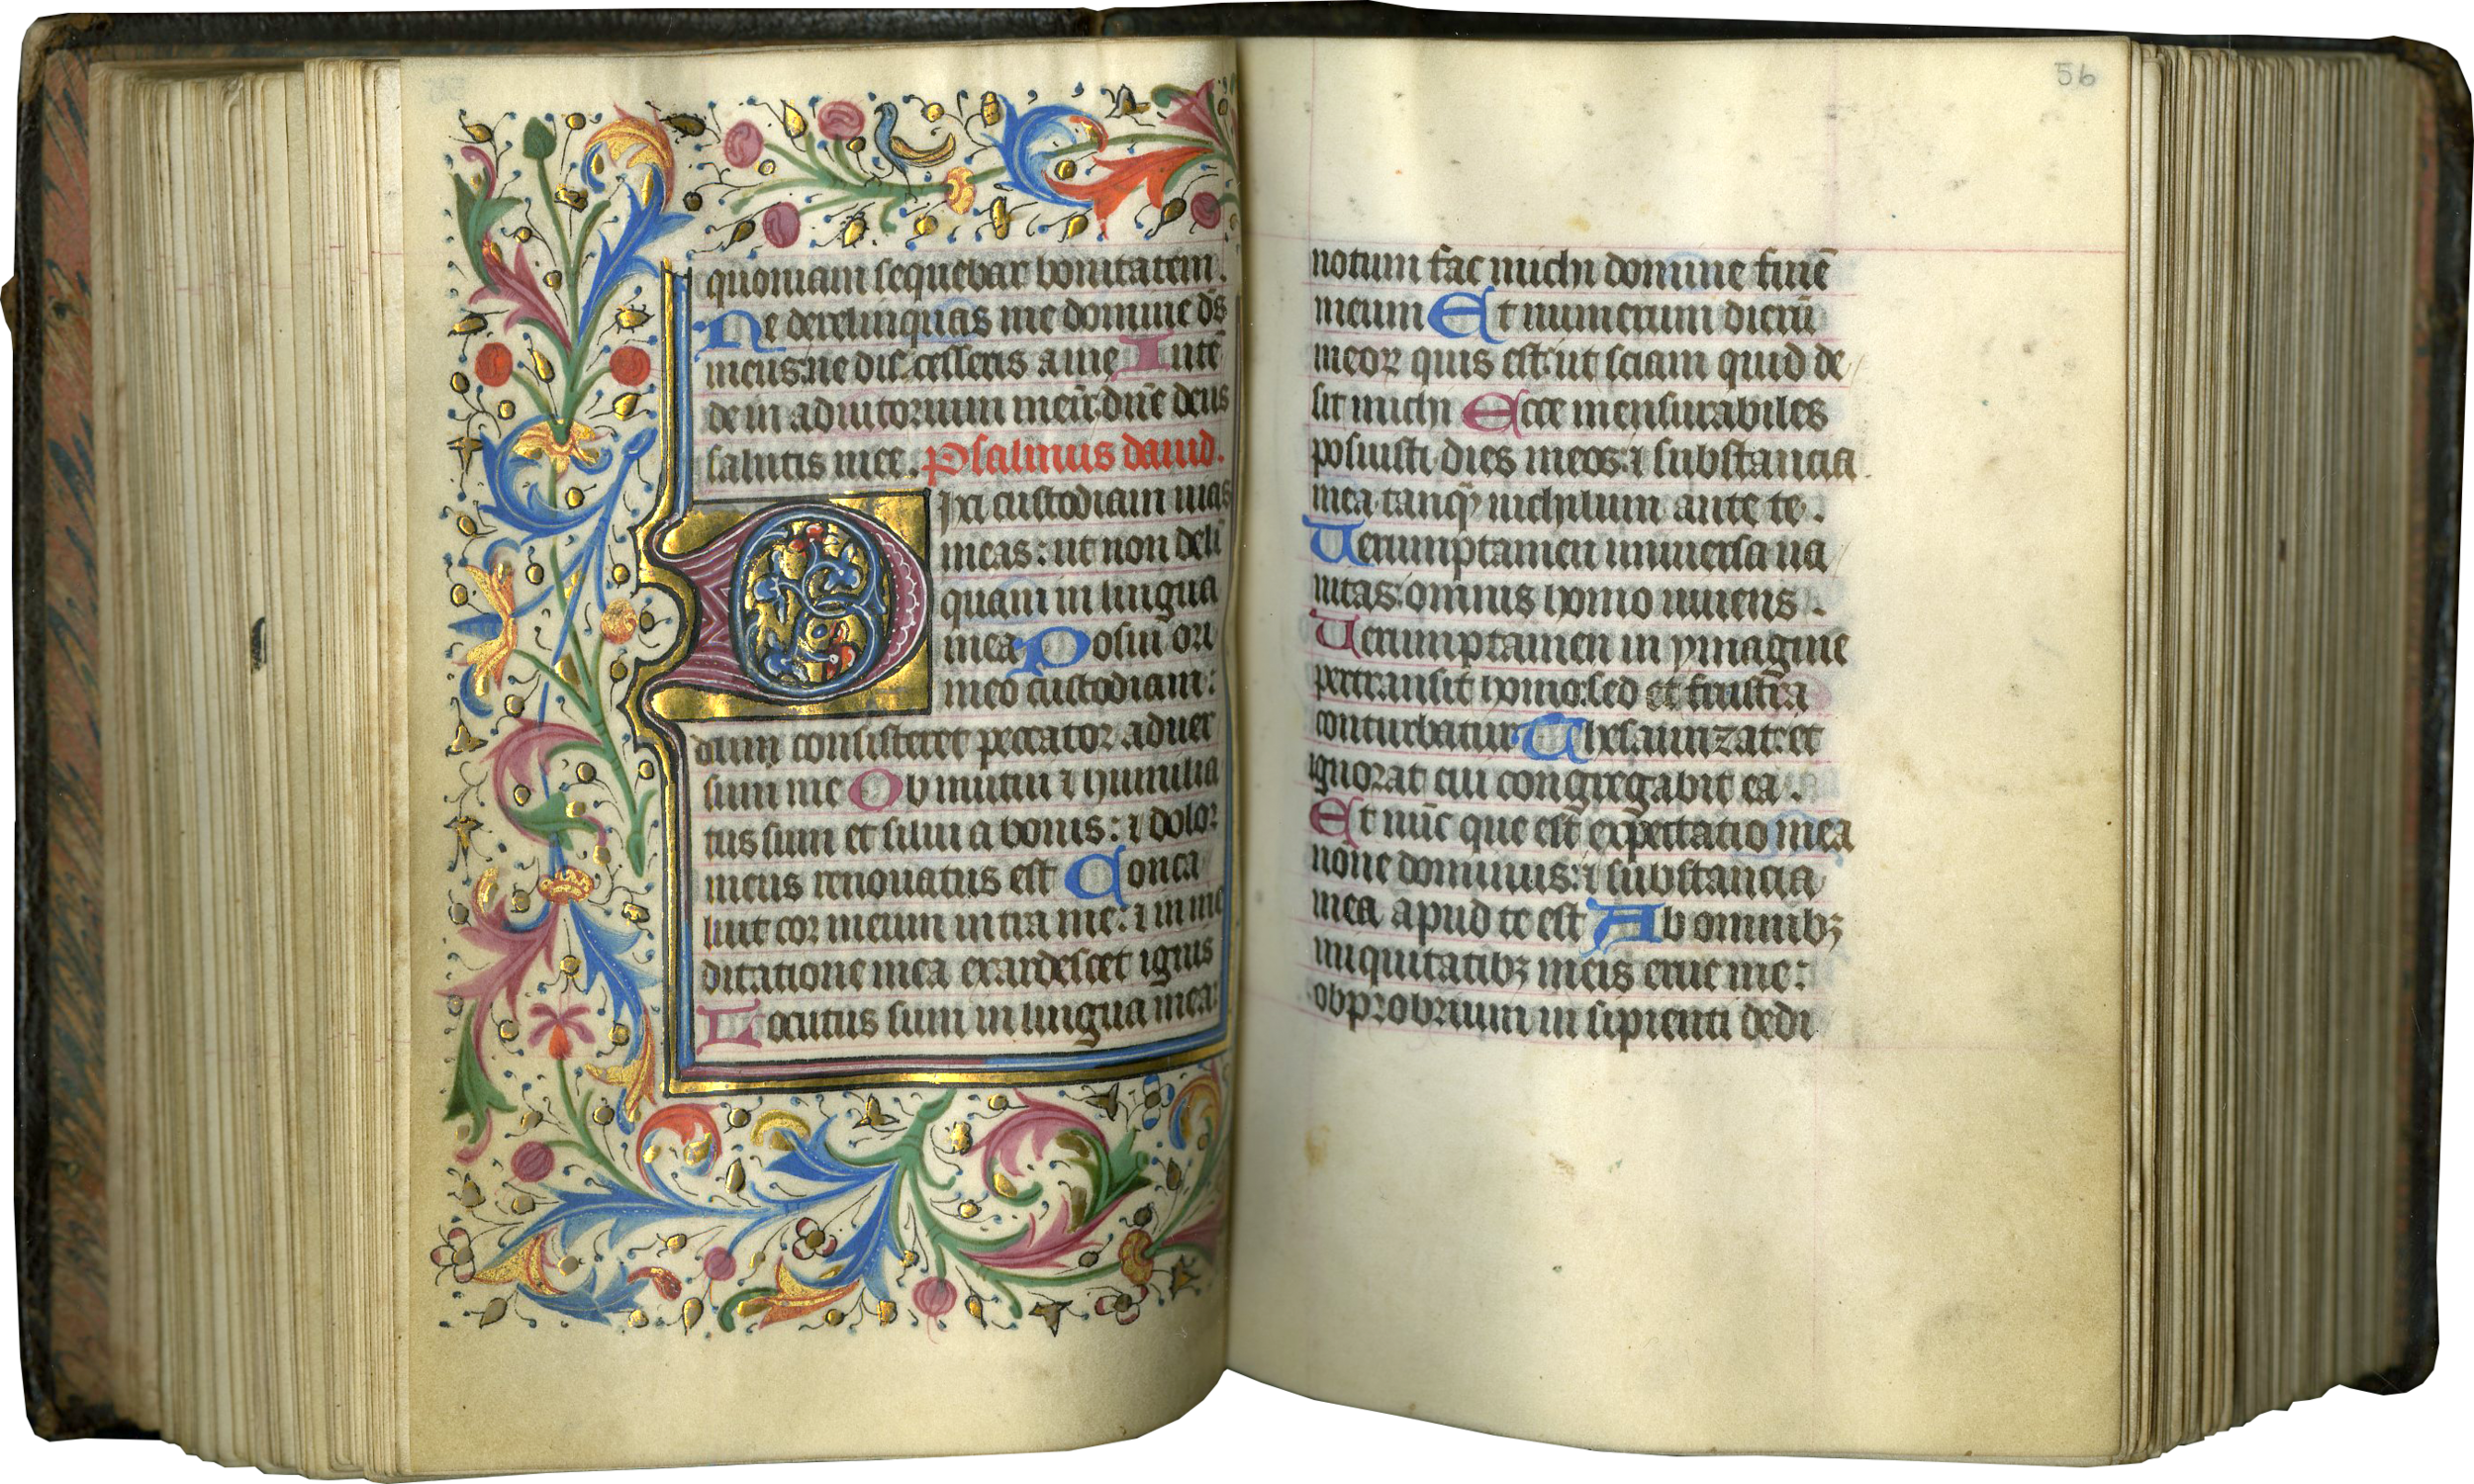 quoniam sequebar bonitatem.
Ne derelinquas me domine d̄s
meus: ne discesseris a me Intē
de in adiutorium meū: dn̄e deus
salutis mee. Psalmus dauid.
Dixi custodiam uias
meas: ut non deli
quam in lingua
mea Posui ori
meo custodiam:
dum consisteret peccator aduer
sum me Obmutui ⁊ humilia
tus sum et silui a bonis: ⁊ dolor
meus renouatus est Conca
luit cor meum intra me: ⁊ in me
ditatione mea exardescet ignis
Locutus sum in lingua mea:
56
notum fac michi domine finē
meum Et numerum dierū
meoꝝ quis est: ut sciam quid de
sit michi Ecce mensurabiles
posuisti dies meos: ⁊ substancia
mea tanqͣ nichilum ante te.
Uerumptamen uniuersa ua
nitas: omnis homo uiuens.
Uerumptamen in ymagine
pertransit homo: sed et frustra
conturbatur Thesaurizat: et
ignorat cui congregabit ea.
Et nūc que est expectatio mea
nonne dominus: ⁊ substancia
mea apud te est Ab omnibꝫ
iniquitatibꝫ meis erue me:
obprobrium insipienti dedi